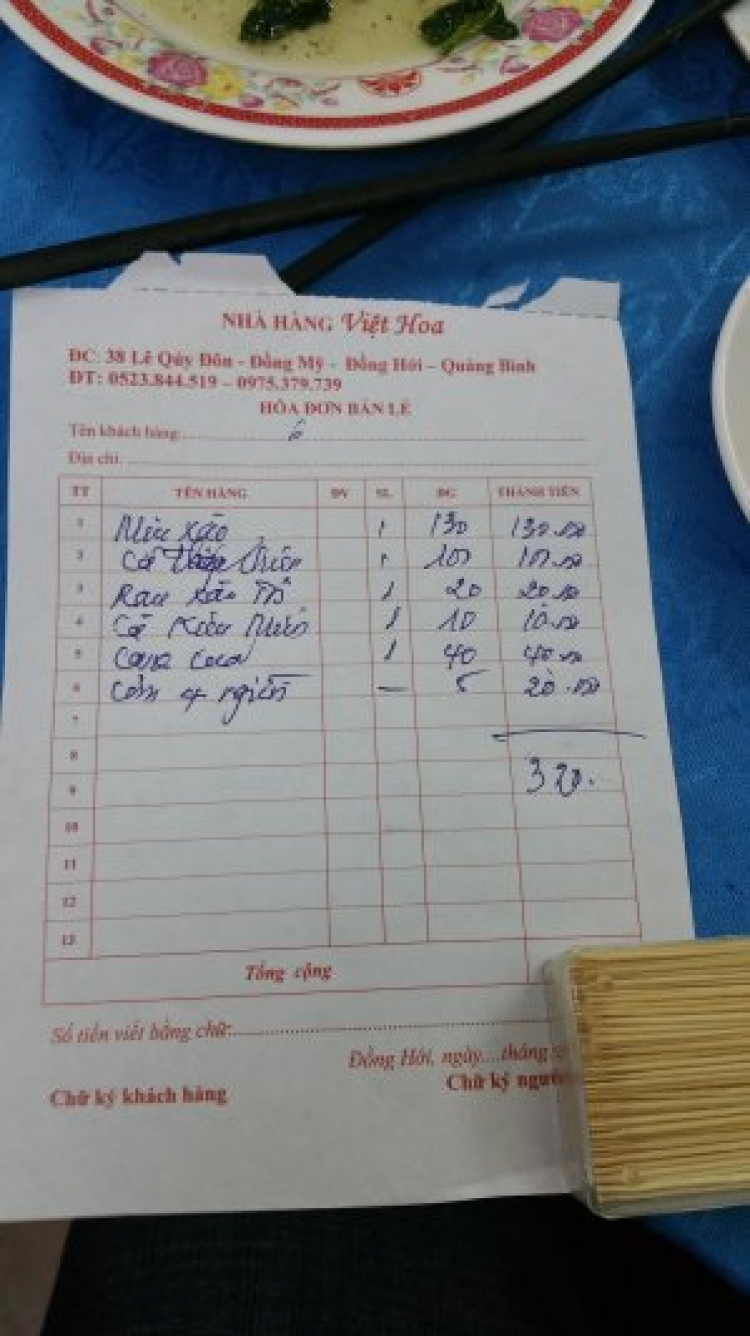 NHÀ HÀNG Việt Hoa
ĐC: 38 Lê Qúy Đôn - Đồng Mỹ - Đồng Hới – Quảng Bình
ĐT: 0523.844.519 – 0975.379.739
HÓA ĐƠN BÁN LẺ
Tên khách hàng: 6
Địa chỉ:
TT TÊN HÀNG ĐV SL ĐG THÀNH TIỀN
1 Mực xào 1 130 130.000
2 Cá 1 100 100.000
3 Rau xào Tỏi 1 20 20.000
4 Cà 1 10 10.000
5 Canh 1 40 40.000
6 Cơm 4 người — 5 20.000
7
8
9 320.
10
11
12
13
Tổng cộng
Số tiền viết bằng chữ:
Đồng Hới, ngày....tháng
Chữ ký khách hàng Chữ ký người